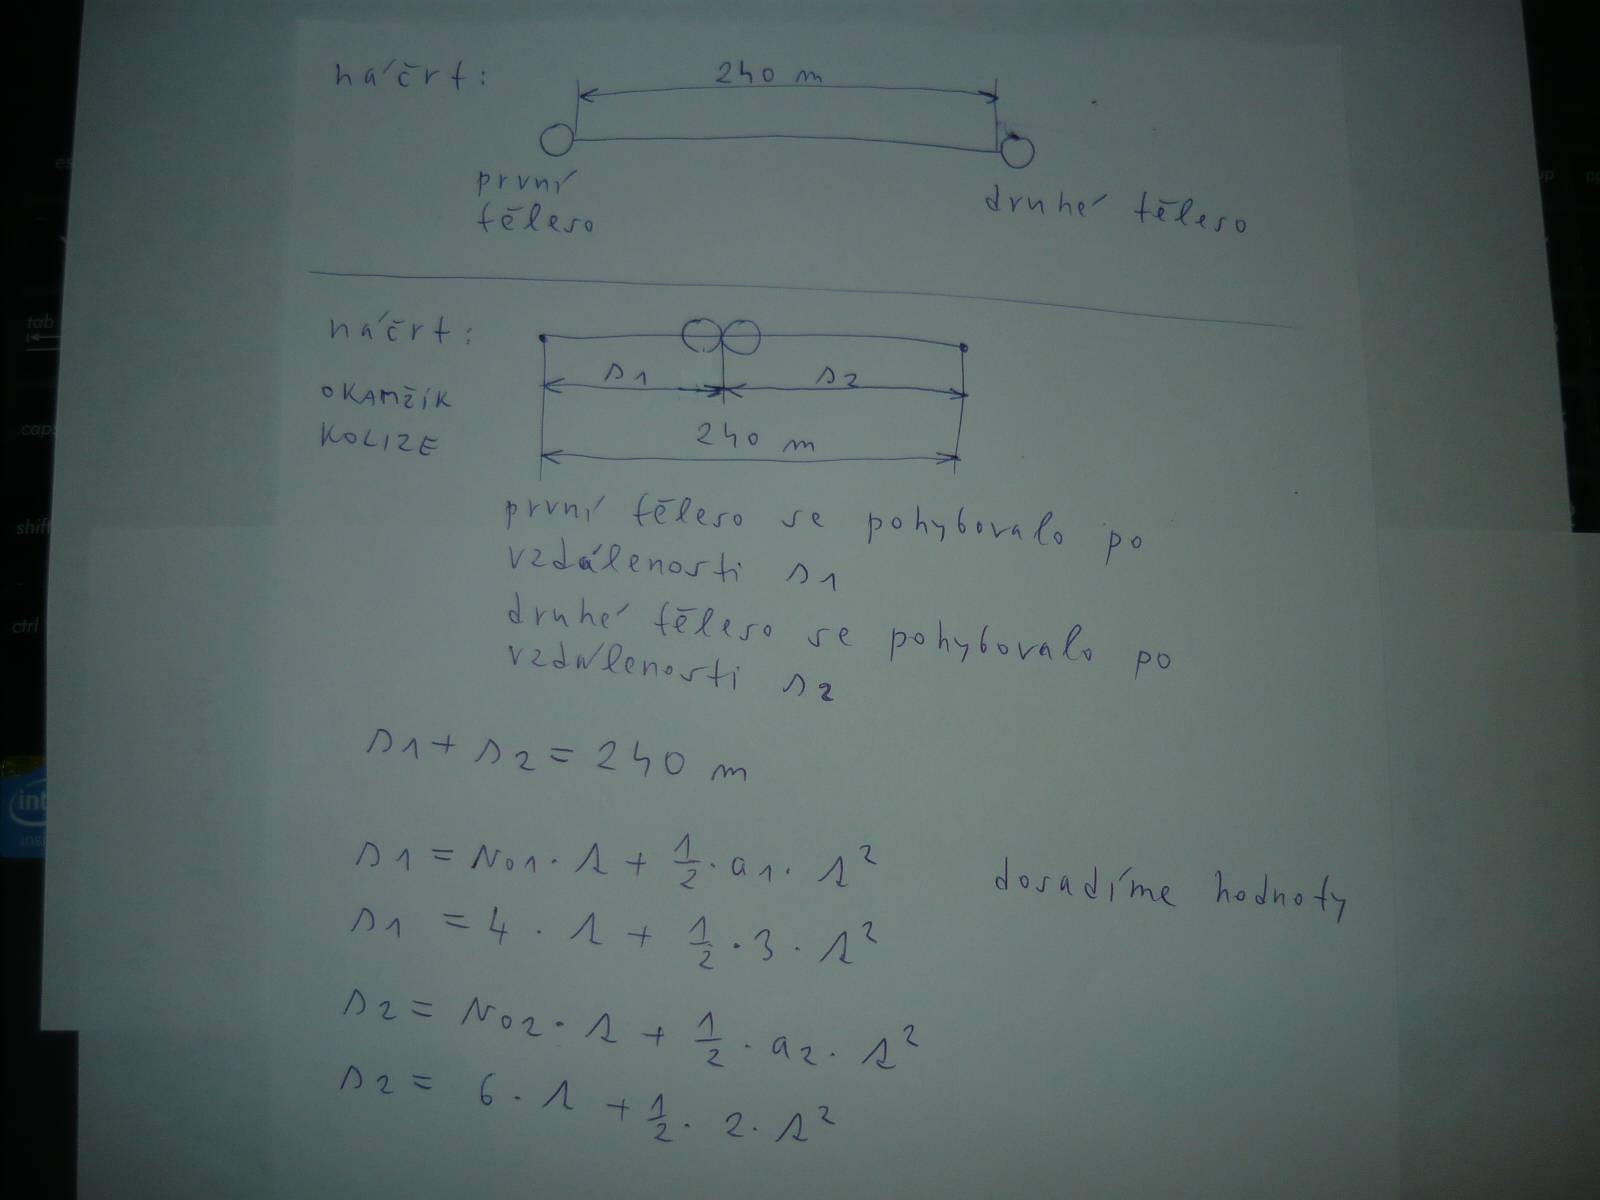 náčrt:
240 m
první
těleso
druhé těleso
náčrt:
OKAMŽIK
KOLIZE
s1
s2
240 m
první těleso se pohybovalo po
vzdálenosti s1
druhé těleso se pohybovalo po
vzdálenosti s2
s1 + s2 = 240 m
s1 = v01 · t + 1/2 · a1 · t²
dosadíme hodnoty
s1 = 4 · t + 1/2 · 3 · t²
s2 = v02 · t + 1/2 · a2 · t²
s2 = 6 · t + 1/2 · 2 · t²
tab
caps
shift
ctrl
up